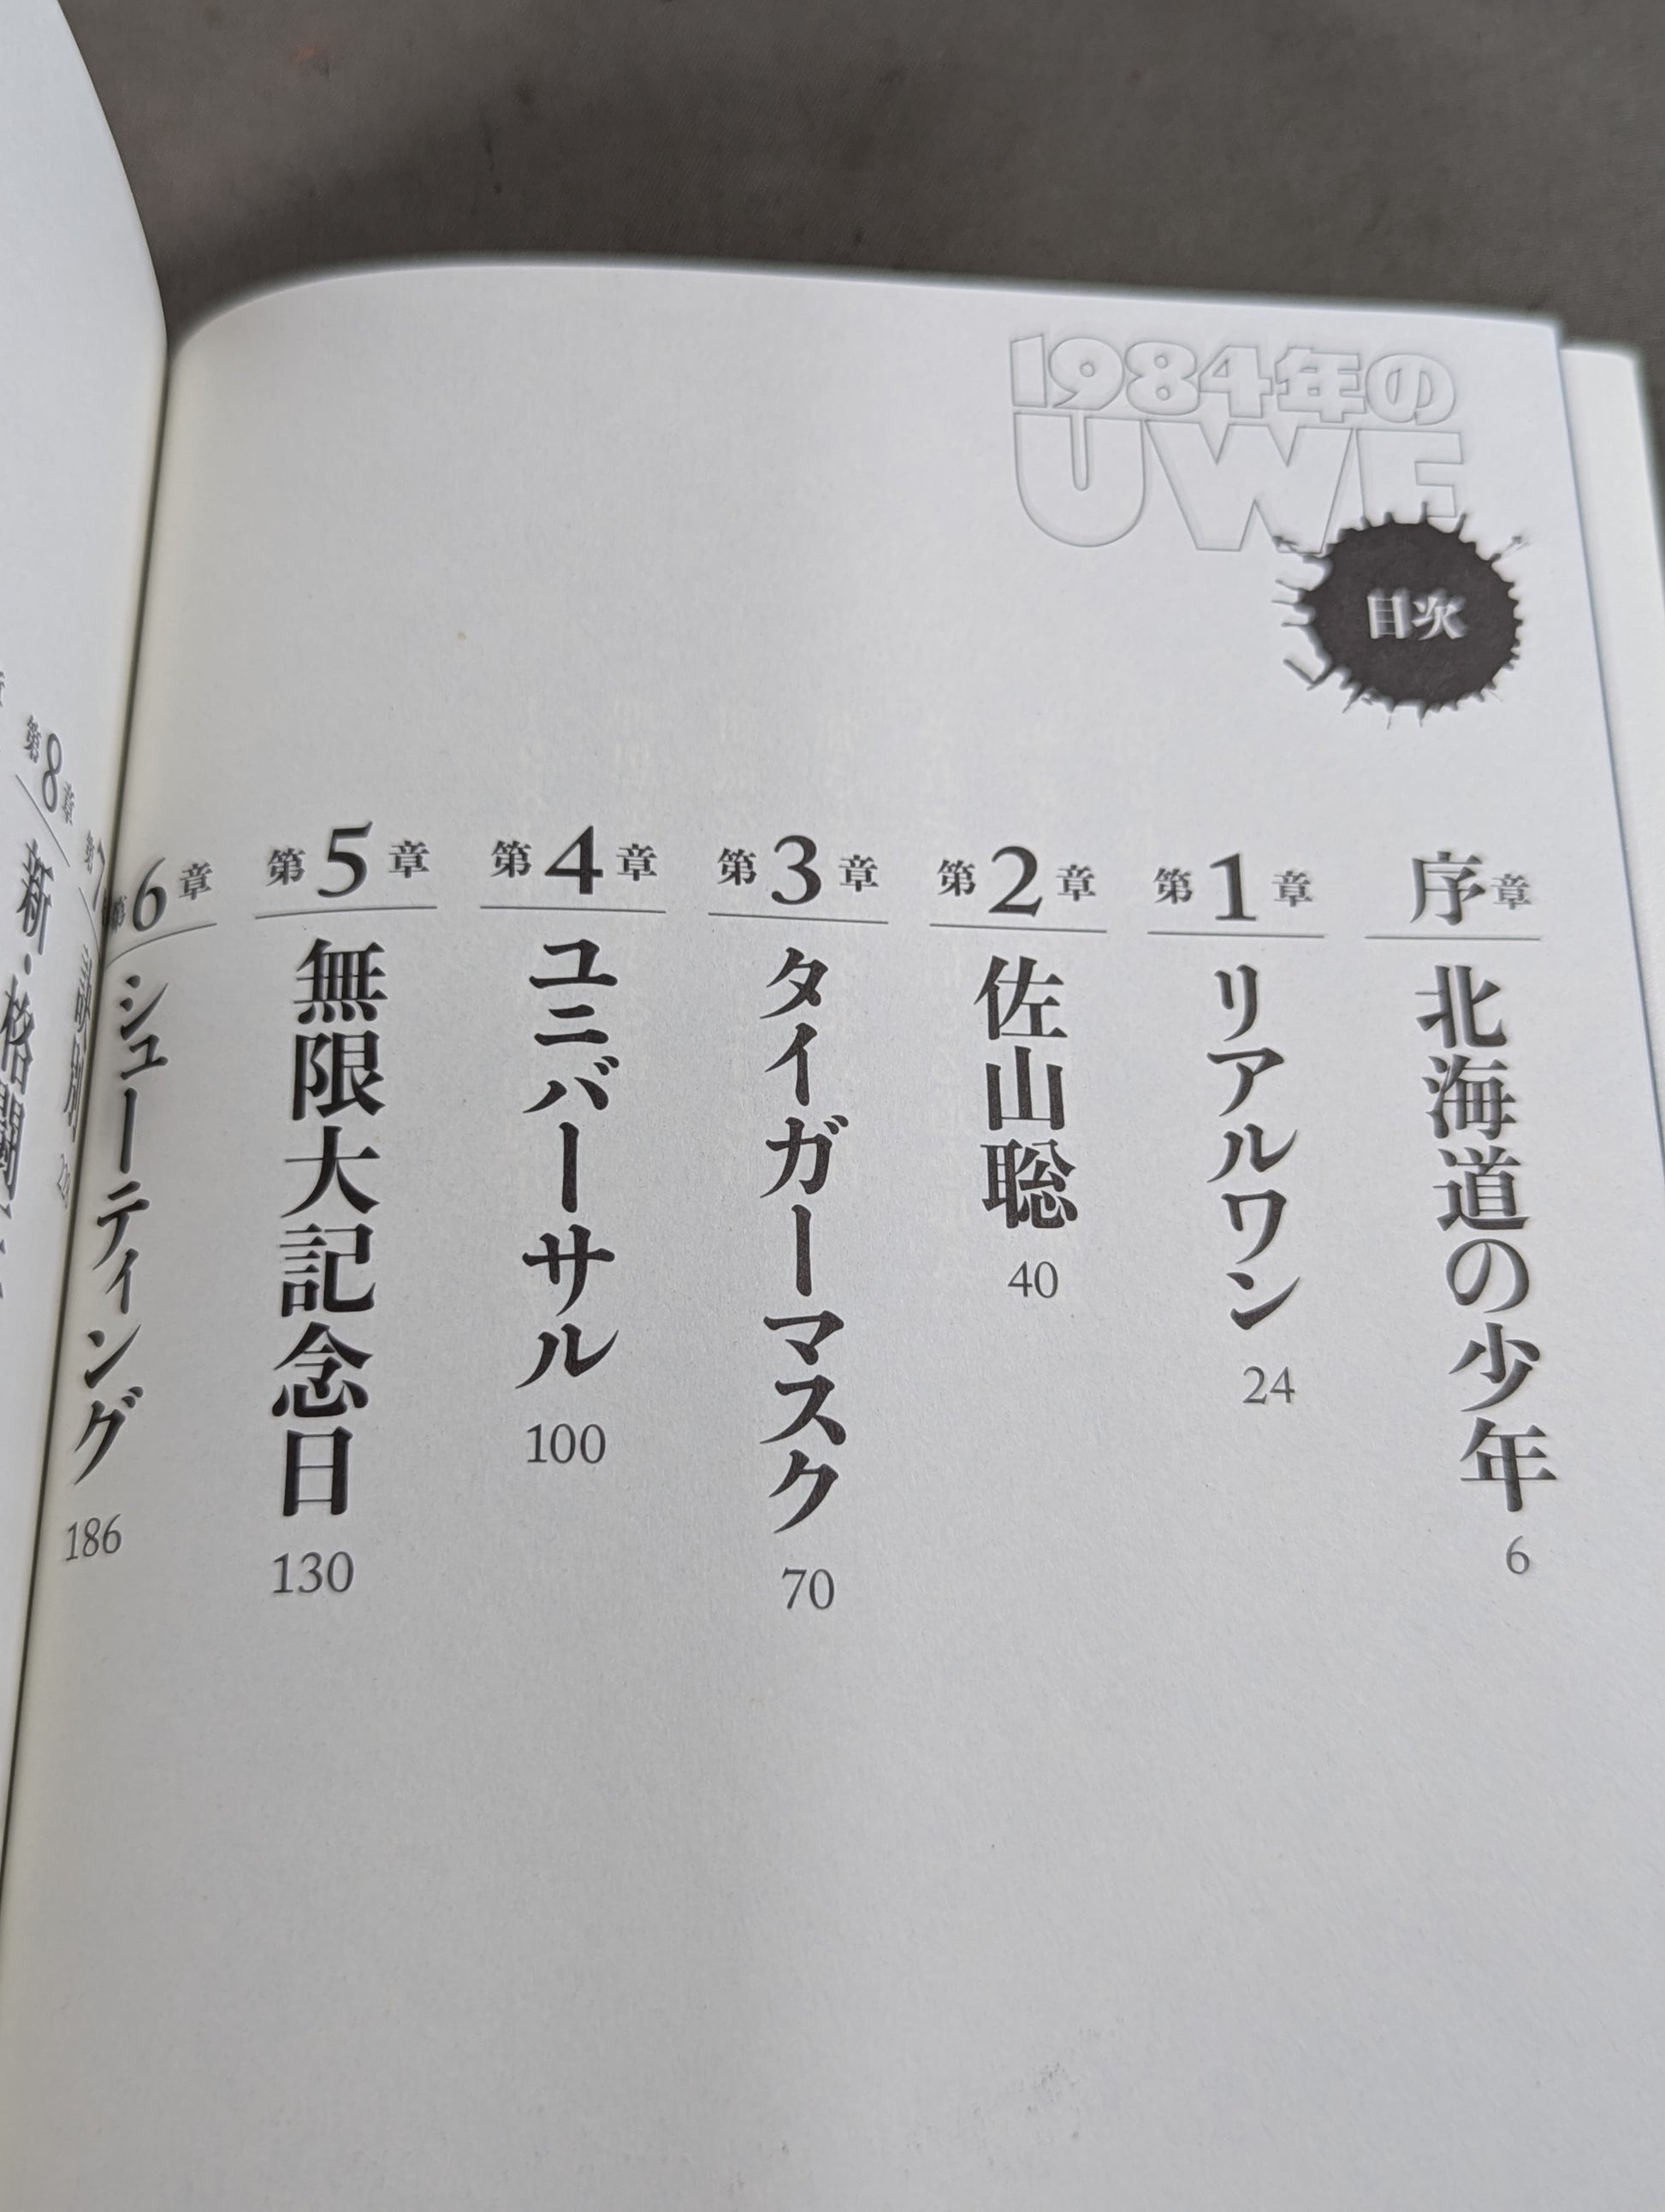 1984年の
UWF
目次
序章
北海道の少年 6
第1章
リアルワン 24
第2章
佐山聡 40
第3章
タイガーマスク 70
第4章
ユニバーサル 100
第5章
無限大記念日 130
第6章
シューティング 186
第8章
新・格闘